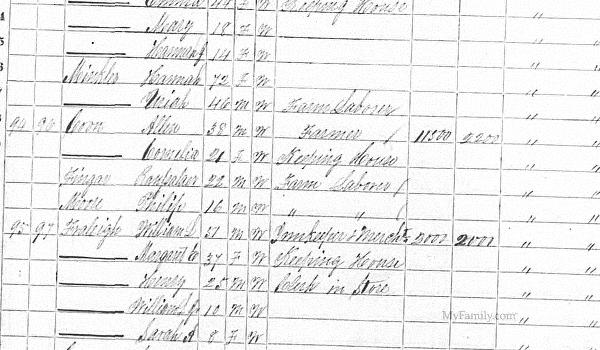 44 F W Keeping House
—— Mary 18 F W "
—— Hannah J 14 F W "
Minkler Hannah 72 F W "
—— Uriah 46 M W Farm Laborer "
94 96 Coon Allen 38 M W Farmer / 11500 2200 "
—— Cornelia 21 F W Keeping House "
Fingar 22 M W Farm Laborer / "
Moore Philip 16 M W " " / "
95 97 Fraleigh William S 51 M W Innkeeper & Mercht 5000 2000 "
—— Margaret E 37 F W Keeping House "
—— Henry 25 M W Clerk in Store "
—— William S Jr 10 M W "
—— Sarah A 8 F W "
MyFamily.com